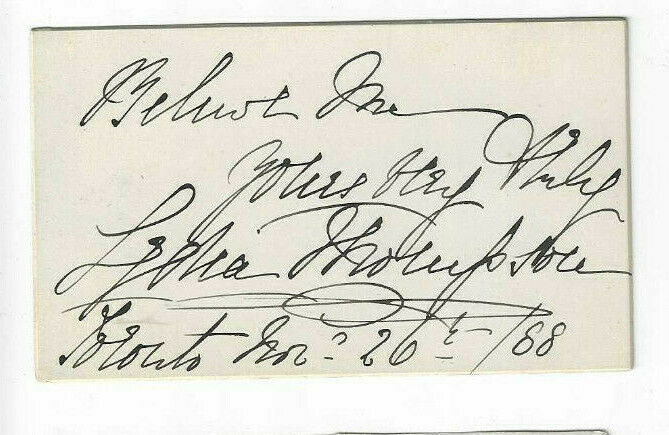 Believe Me
Yours Very Truly
Lydia Thompson
Toronto Nov: 26th /88